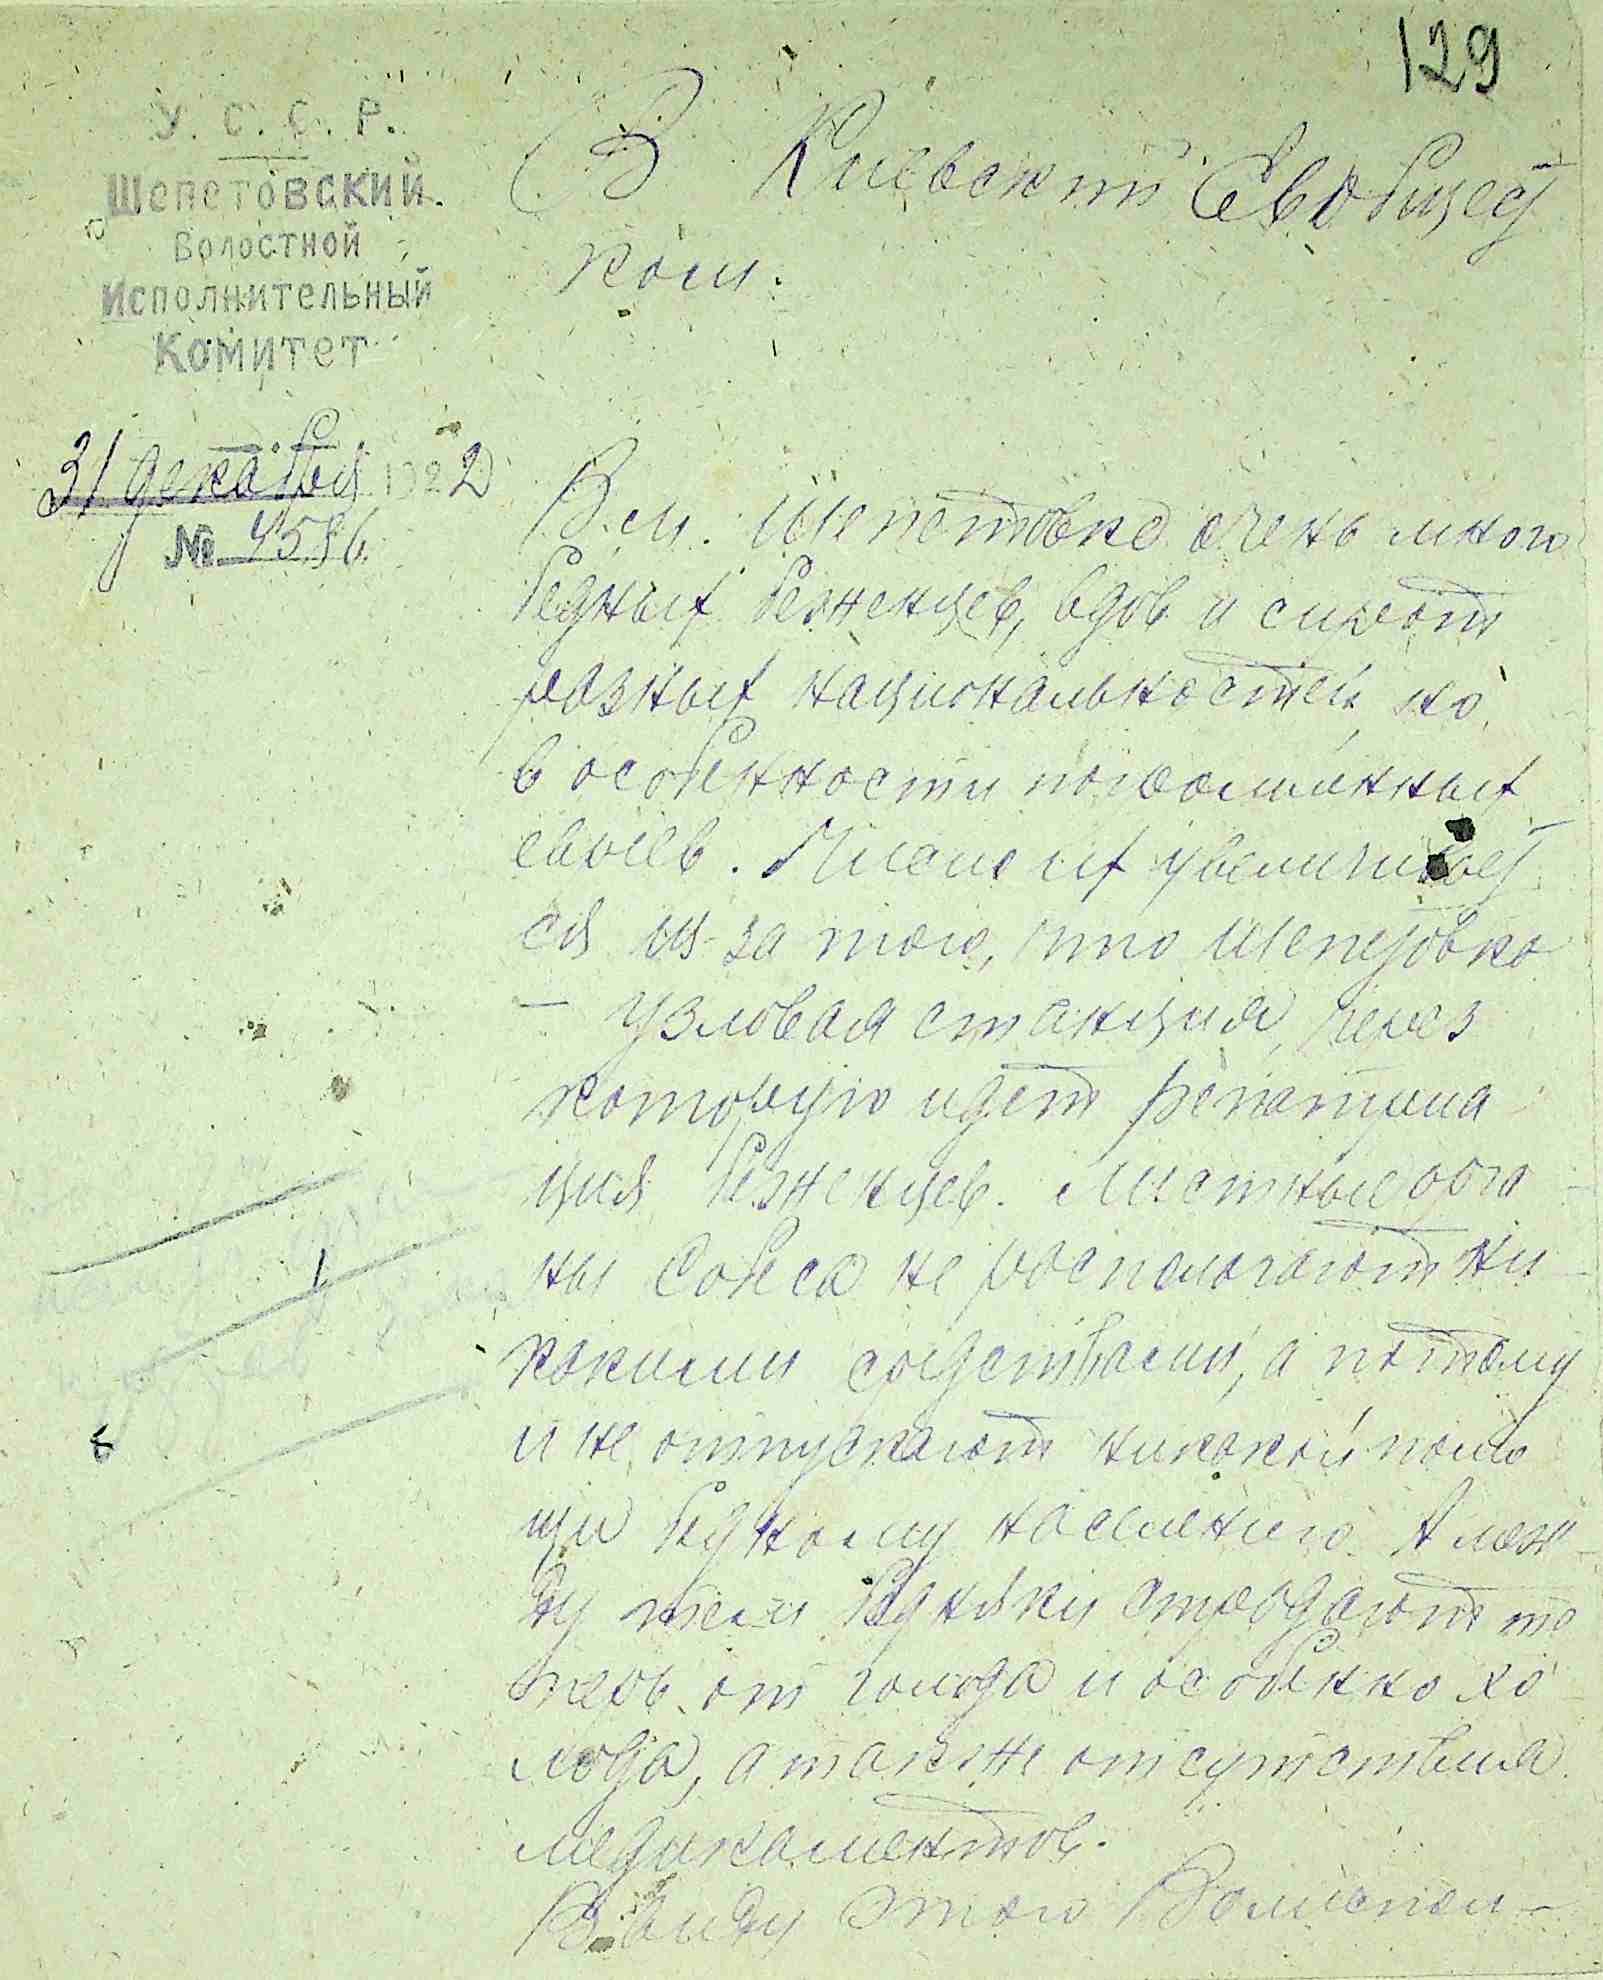 129
У. С. С. Р.
Шепетовский
Волостной
Исполнительный
Комитет
31 декабря 1922
№ 4586
В Киевский Евобщест
ком.
В м. Шепетовке очень много
бедных беженцев, вдов и сирот
разных национальностей но
в особенности погромленных
евреев. Число их увеличивает
ся из-за того, что Шепетовка
– узловая станция, через
которую идет репатриа
ция беженцев. Местные орга
ны Собеса не располагают ни
какими средствами, а потому
и не отпускают никакой помо
щи бедному населению. А меж
ду тем бедняки страдают те
перь от голода и особенно хо
лода, а также отсутствия
медикаментов.
В виду этого Волиспол-